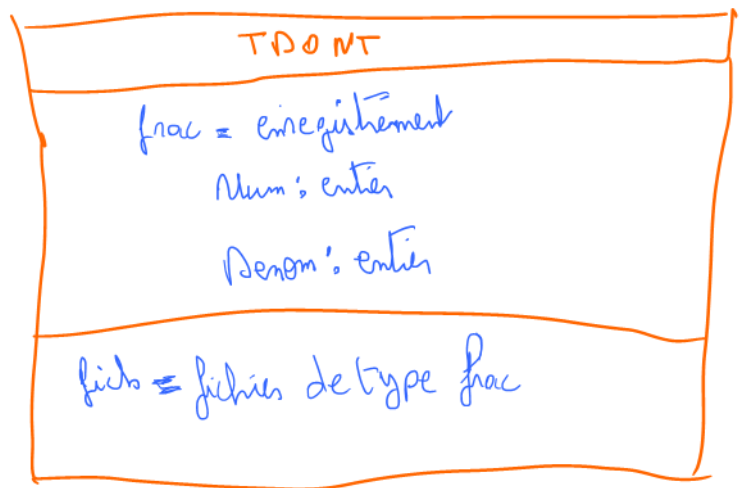 TDONT
frac = enregistrement
Num : entier
Denom : entier
fich = fichier de type frac